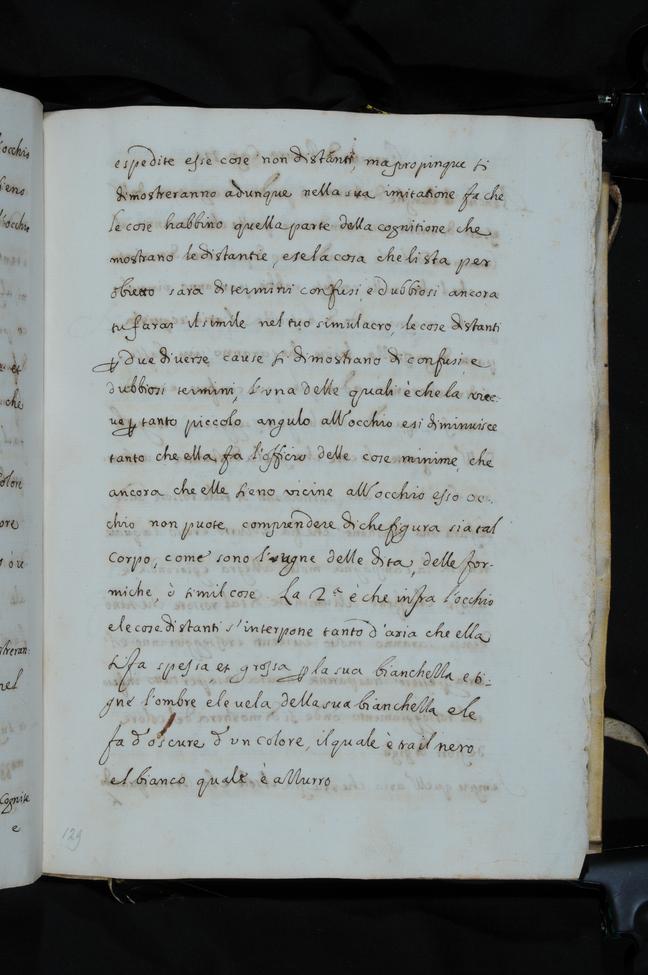 espedite esse cose non distanti, ma propinque si
dimostreranno adunque nella sua imitatione fa che
le cose habbino quella parte della cognitione che
mostrano le distantie, e se la cosa che li sta per
obietto sara di termini confusi, e dubbiosi ancora
tu farai il simile nel tuo simulacro, le cose distanti
p due diverse cause si dimostrano di confusi e
dubbiosi termini, l'una delle quali è che la viec-
ue p tanto piccolo angulo all'occhio e si diminuisce
tanto che ella fa l'officio delle cose minime, che
ancora che elle sieno vicine all'occhio esso oc-
chio non puote, comprendere di che figura sia tal
Corpo, come sono l'ugne delle dita, delle for-
miche, ò simil cose. La 2.a è che infra l'occhio
e le cose distanti s'interpone tanto d'aria che ella
si fa spessa et grossa p la sua bianchella e ti-
gne l'ombre e le vela della sua bianchella e le
fa d'oscure d'un colore, il quale è tra il nero
el bianco quale è azzurro
129
l'occhio
sieno
l'occhio
et
che
Colore
ore
streran:
nel
Cognite
e